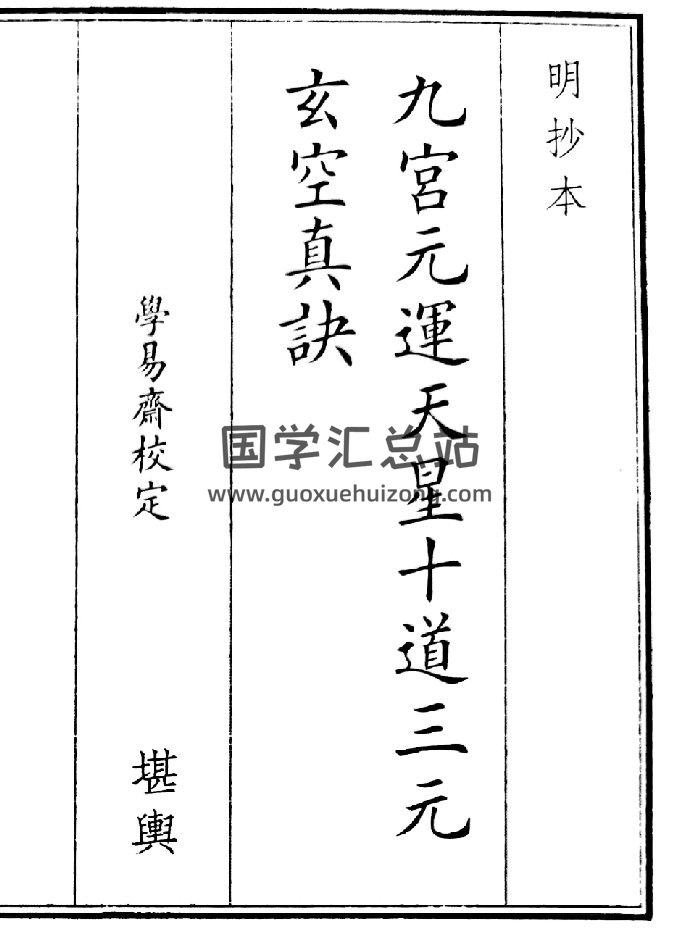 明抄本
九宮元運天星十道三元
玄空真訣
學易齋校定
堪輿
国学汇总站
www.guoxuehuizong.com